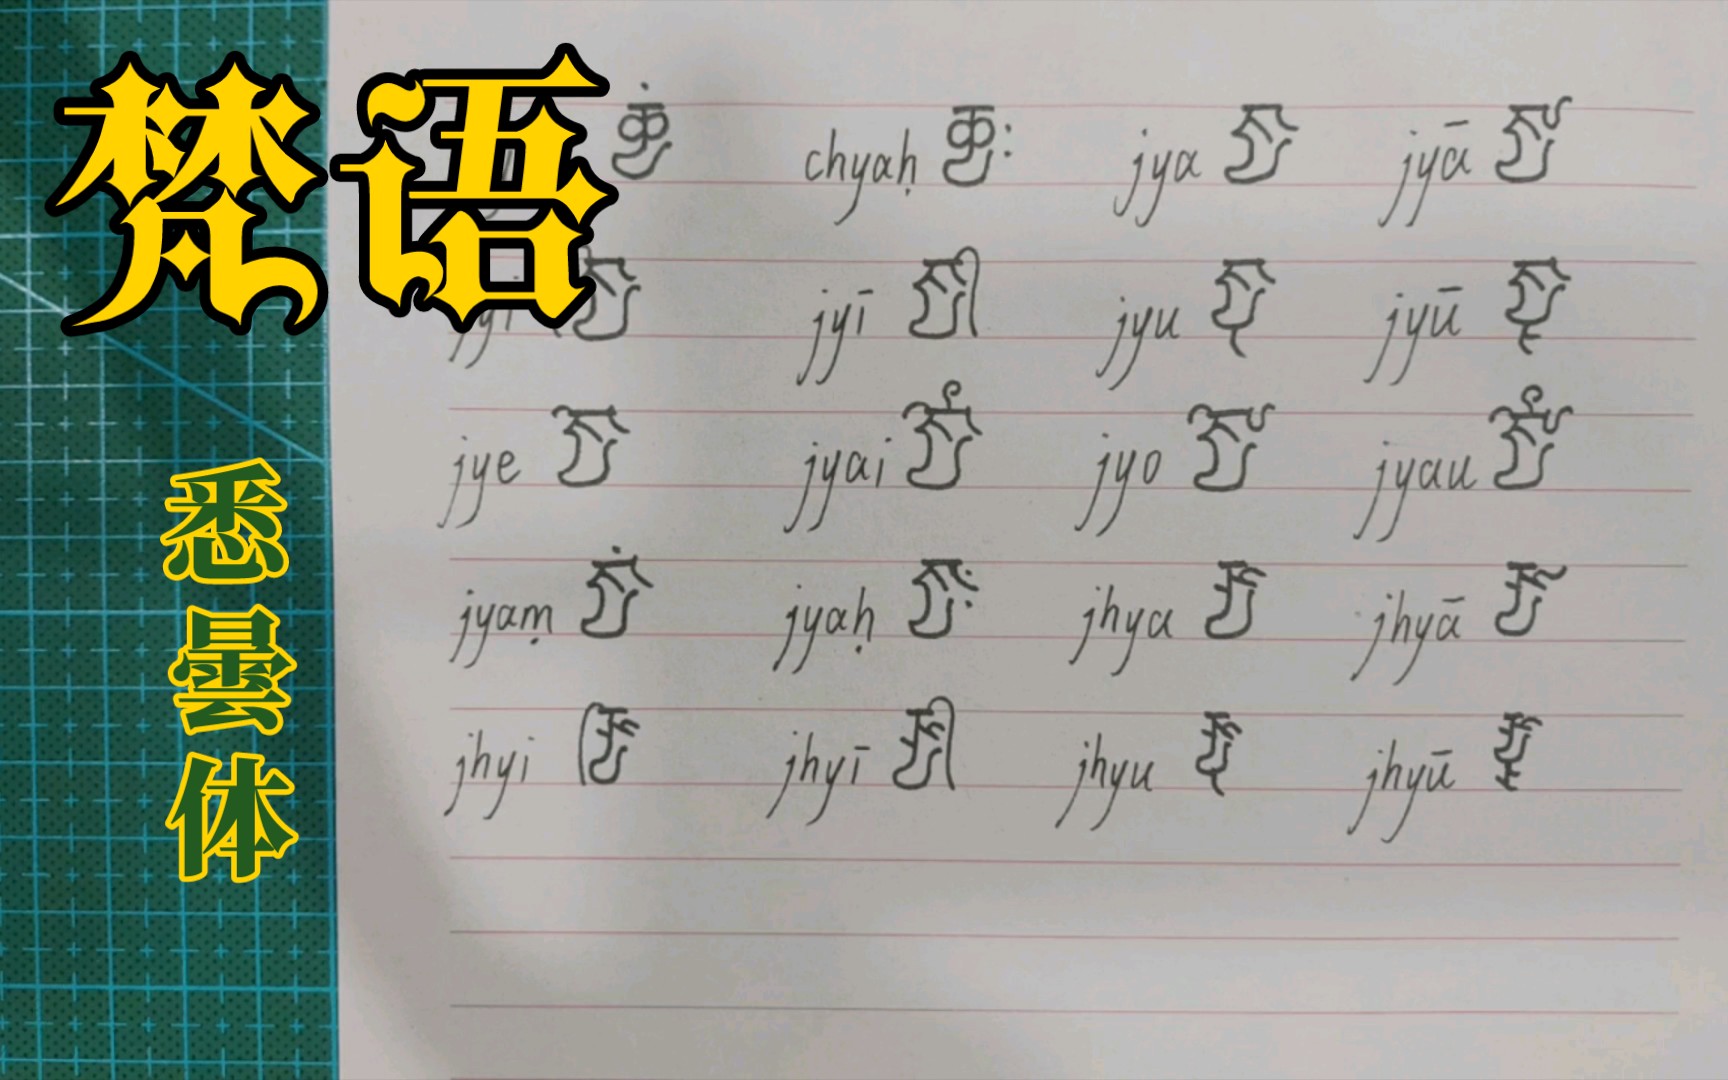 梵语
悉昙体
chyaḥ 𑖔𑖿𑖧𑖾 jya 𑖕𑖿𑖧 jyā 𑖕𑖿𑖧𑖯
jyi 𑖕𑖿𑖧𑖰 jyī 𑖕𑖿𑖧𑖱 jyu 𑖕𑖿𑖧𑖲 jyū 𑖕𑖿𑖧𑖳
jye 𑖕𑖿𑖧𑖸 jyai 𑖕𑖿𑖧𑖹 jyo 𑖕𑖿𑖧𑖺 jyau 𑖕𑖿𑖧𑖻
jyaṃ 𑖕𑖿𑖧𑖽 jyaḥ 𑖕𑖿𑖧𑖾 jhya 𑖖𑖿𑖧 jhyā 𑖖𑖿𑖧𑖯
jhyi 𑖖𑖿𑖧𑖰 jhyī 𑖖𑖿𑖧𑖱 jhyu 𑖖𑖿𑖧𑖲 jhyū 𑖖𑖿𑖧𑖳